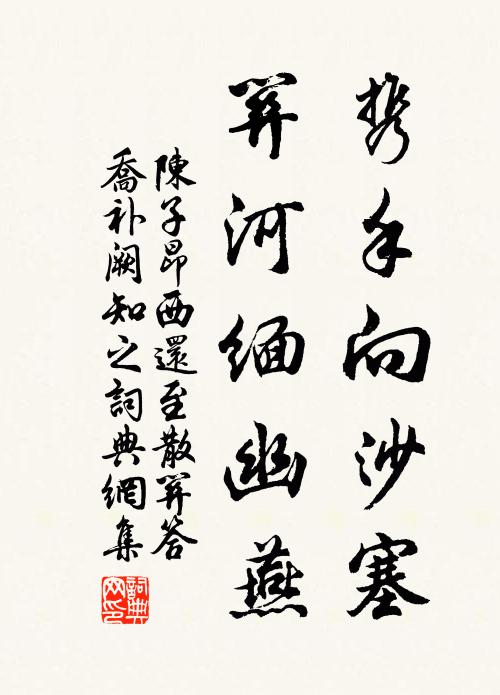 携手向沙塞
關河緬幽燕
陳子昂西還至散關答
喬补闕知之詞典網集
詞典
网印